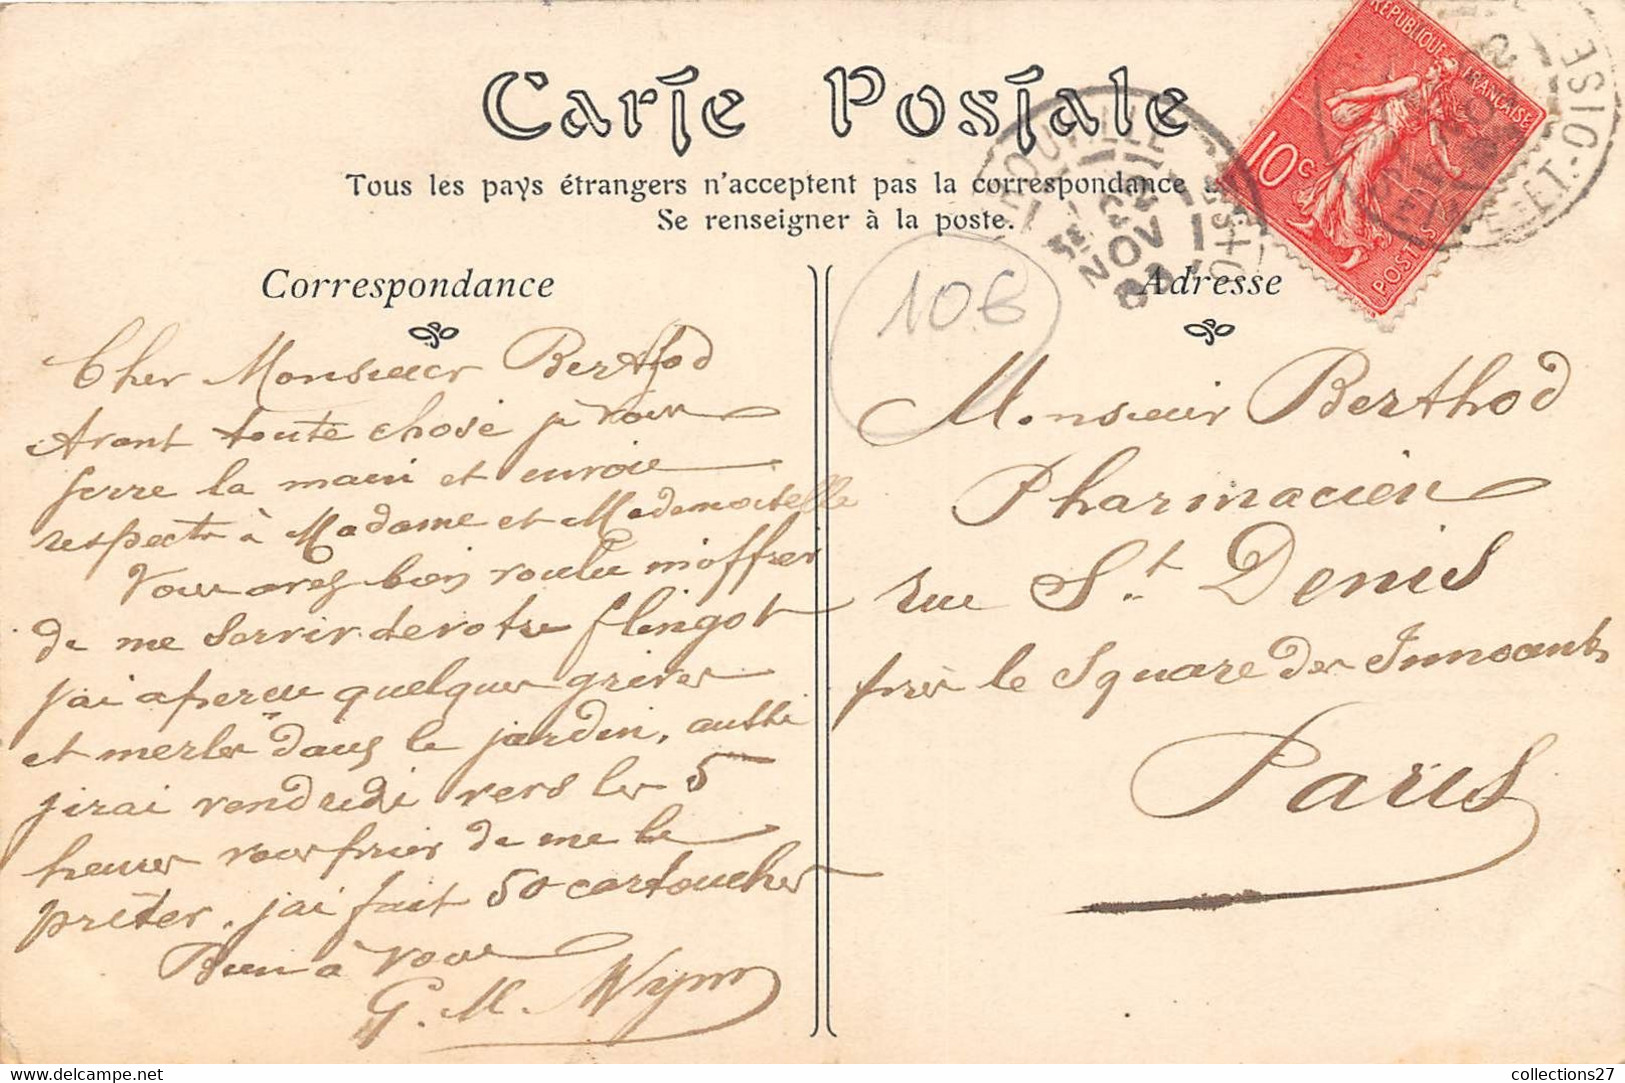 Carte Postale
Tous les pays étrangers n'acceptent pas la correspondance
Se renseigner à la poste.
RÉPUBLIQUE FRANÇAISE
10c
POSTES
OUVILLE
NOV
OISE
ET-OISE
10€
Correspondance
Cher Monsieur Berthod
Avant toute chose je vous
serre la main et envoie
respects à Madame et Mademoiselle
Vous avez bien voulu m'offrir
de me servir de votre flingot
j'ai aperçu quelques grives
et merles dans le jardin, aussi
j'irai vendredi vers les 5
heures vous prier de me le
prêter. j'ai fait 50 cartouches
Bien à vous
G. M.
Adresse
Monsieur Berthod
Pharmacien
rue St. Denis
près le Square des Innocents
Paris
collections27